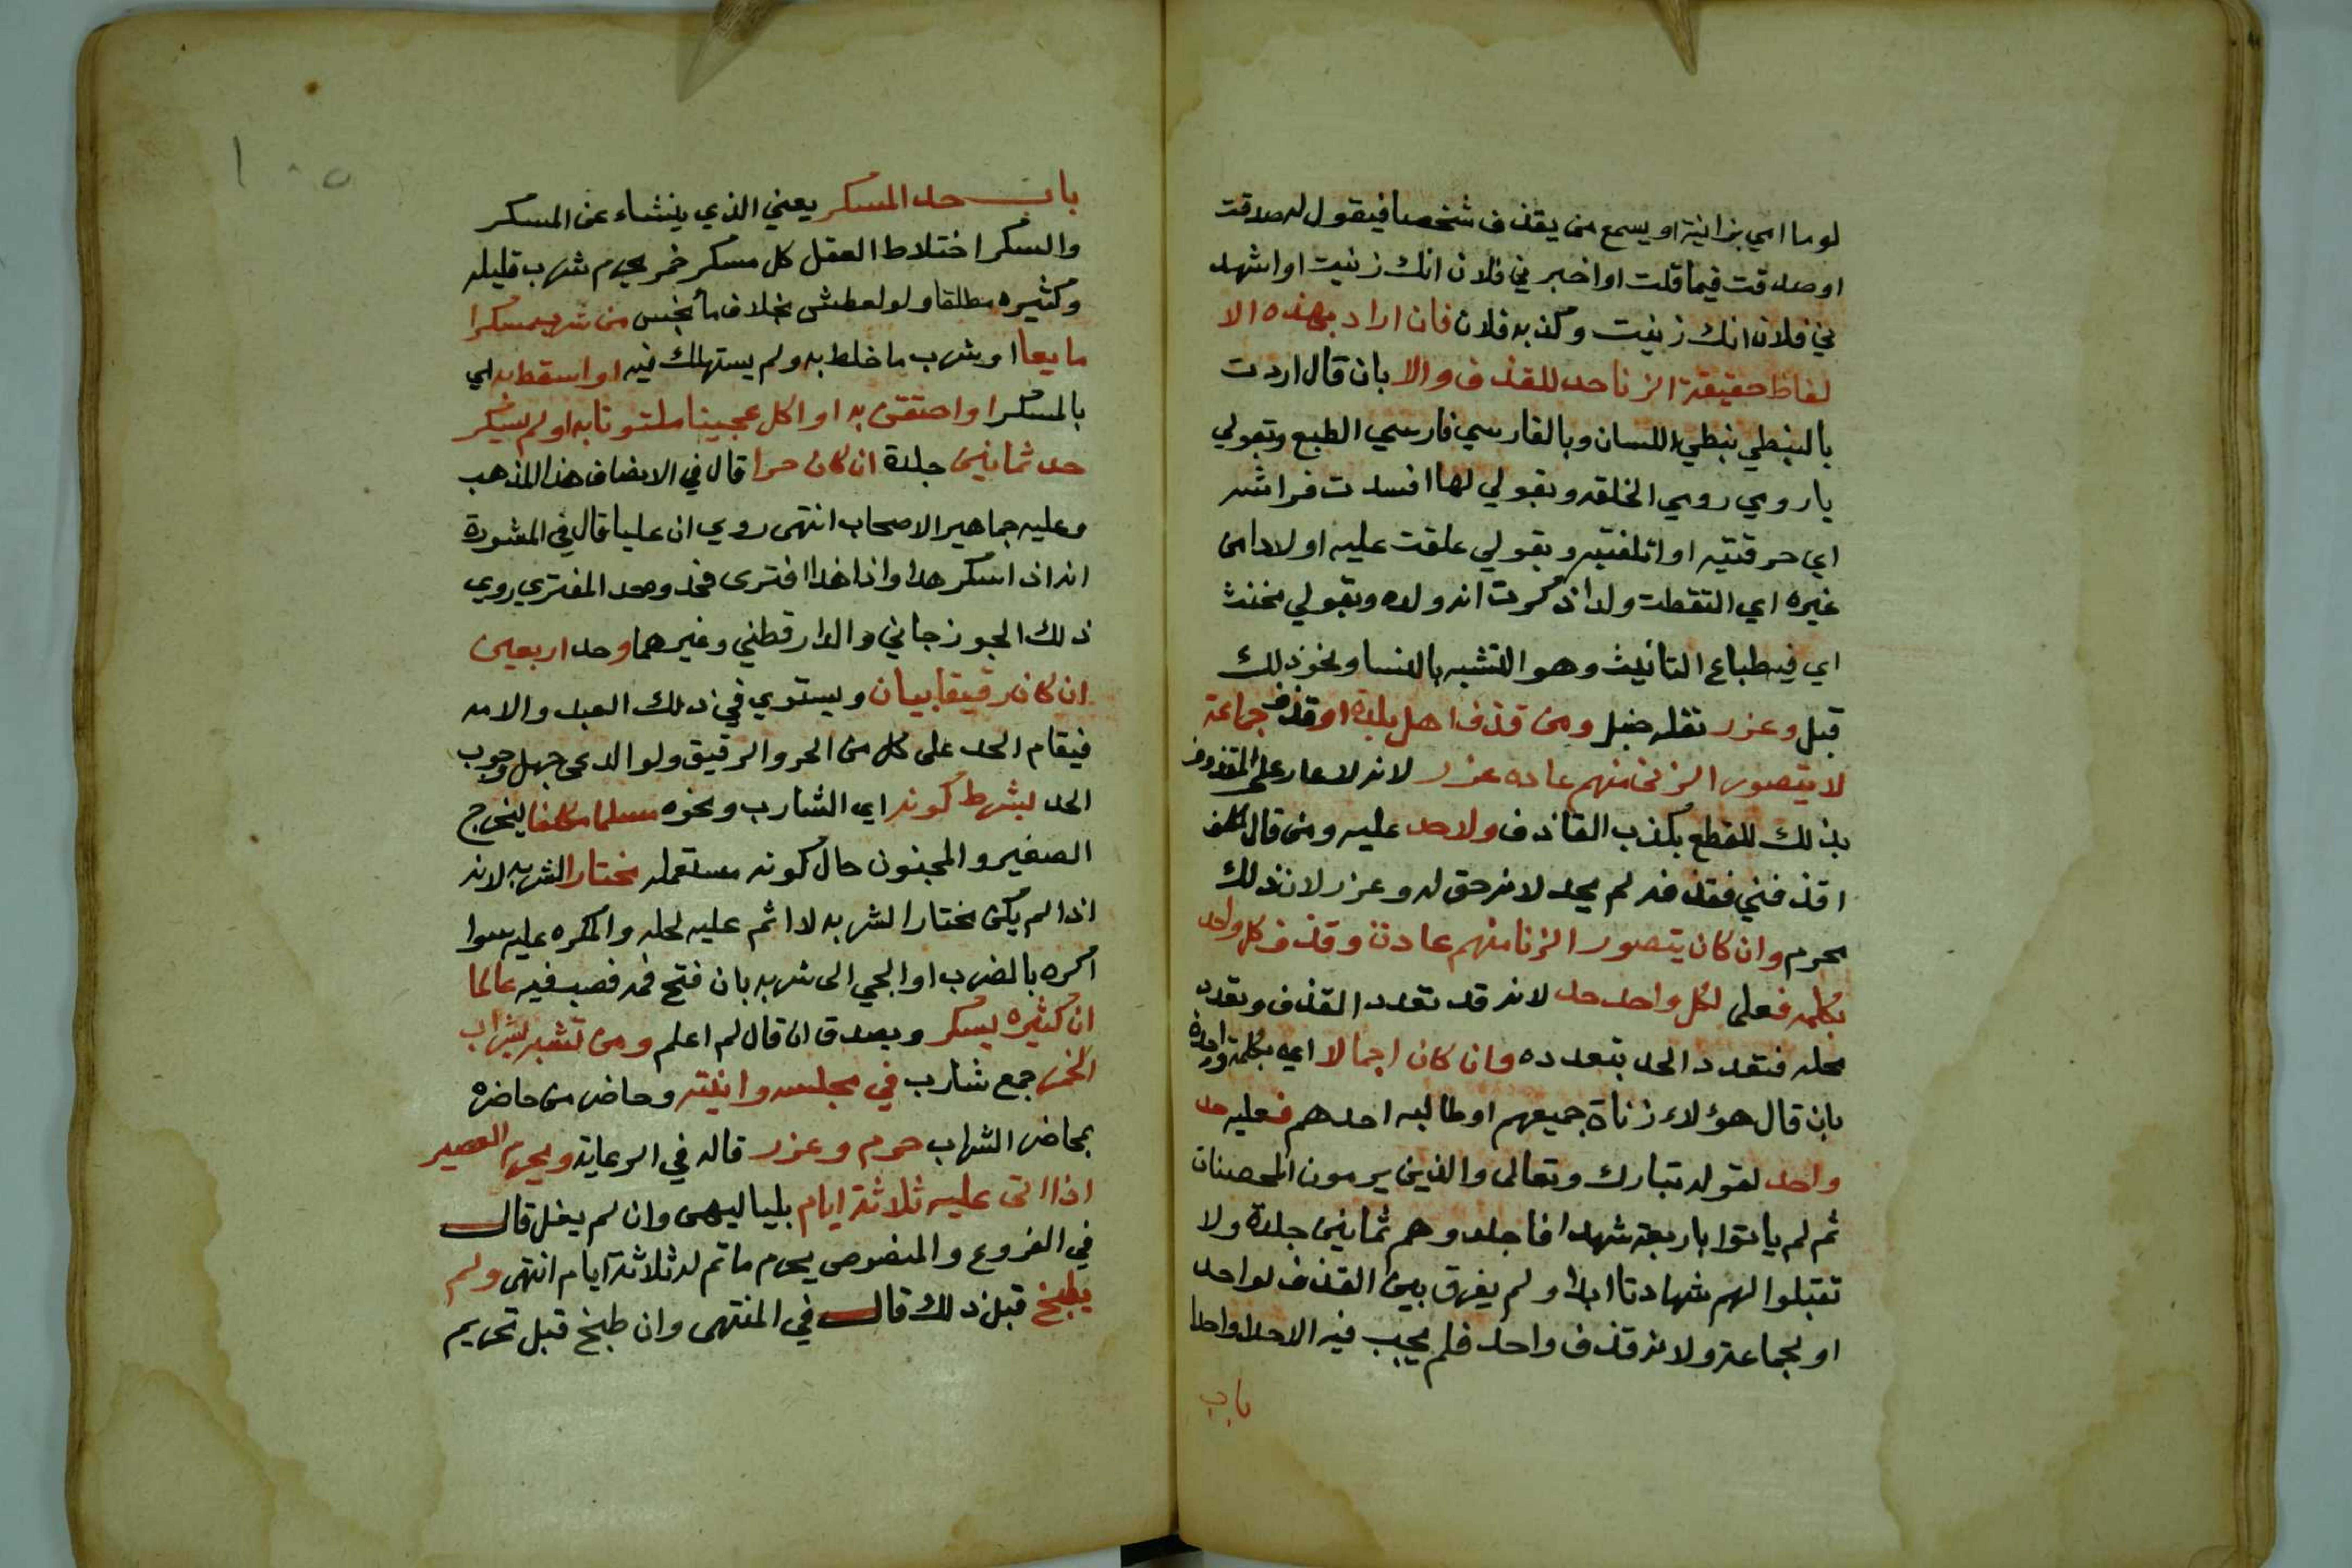 لوما امي بزانية او يسمع من يقذف شخصا فيقول له صدقت
او صدقت فيما قلت او اخبرني فلان انك زنيت او اشهد
ني فلان انك زنيت وكذبه فلان فان اراد بهذه الا
لفاظ حقيقة الزنا حد للقذف والا بان قال اردت
بالنبطي نبطي اللسان وبالفارسي فارسي الطبع وبقولي
يا رومي رومي الخلقه وبقولي لها افسدت فراشه
اي حرقتيه او اتلفتيه وبقولي علقت عليه اولادا من
غيره اي التقطت ولدا ذكرت انه ولده وبقولي مخنث
اي فيه طباع التانيث وهو التشبه بالنسا ونحو ذلك
قبل وعزر نقله حنبل ومن قذف اهل بلدة او قذف جماعة
لا يتصور الزنى منهم عاده عزر لانه لا عار على المقذوف
بذلك للقطع بكذب القاذف ولا حد عليه ومن قال لمكلف
اقذفني فقذفه لم يحد لانه حق له وعزر لان ذلك
محرم وان كان يتصور الزنا منهم عادة وقذف كل واحد
بكلمه فعلى لكل واحد حد لانه قد تعدد القذف وتعدد
محله فتعدد الحد بتعدده وان كان اجمالا اي بكلمة واحدة
بان قال هؤلاء زناة جميعهم او طالبه احدهم فعليه حد
واحد لقوله تبارك وتعالى والذين يرمون المحصنات
ثم لم ياتوا باربعة شهدا فاجلدوهم ثمانين جلدة ولا
تقبلوا لهم شهادتا ابدا ولم يفرق بين القذف لواحد
او لجماعة ولانه قذف واحد فلم يجب فيه الاحدا واحدا
باب
١٠٥
باب حد المسكر يعني الذي ينشاء عن المسكر
والسكر اختلاط العقل كل مسكر خمر يحرم شرب قليله
وكثيره مطلقا ولو لعطش بخلاف ما نجس من شرب مسكرا
مايعا او شرب ما خلط به ولم يستهلك فيه او استعط به اي
بالمسكر او احتقن به او اكل عجينا ملتوتا به او لم يسكر
حد ثمانين جلدة ان كان حرا قال في الانصاف هذا المذهب
وعليه جماهير الاصحاب انتهى روي ان عليا قال في المشورة
انه اذا سكر هدا واذا هذا افترى فحدوه حد المفتري روي
ذلك الجوزجاني والدارقطني وغيرهما وحد اربعين
ان كان رقيقا بيان ويستوي في ذلك العبد والامه
فيقام الحد على كل من الحر والرقيق ولو ادعى جهل وجوب
الحد بشرط كونه اي الشارب ونحوه مسلما مكلفا ليخرج
الصغير والمجنون حال كونه مستعمله مختارا لشربه لانه
اذا لم يكن مختارا لشربه لا اثم عليه لحله والمكره عليه سوا
اكره بالضرب او الجي الى شربه بان فتح فمه فصب فيه عالما
ان كثيره يسكر ويصدق ان قال لم اعلم ومن تشبه بشراب
الخمر جمع شارب في مجلسه وانيته وحاضر من حاضره
بمحاضر الشراب حرم وعزر قاله في الرعاية ويحرم العصير
اذا اتى عليه ثلاثة ايام بلياليهن وان لم يغل قال
في الفروع والمنصوص يحرم ما تم له ثلاثة ايام انتهى ولم
يطبخ قبل ذلك قال في المنتهى وان طبخ قبل تحريم